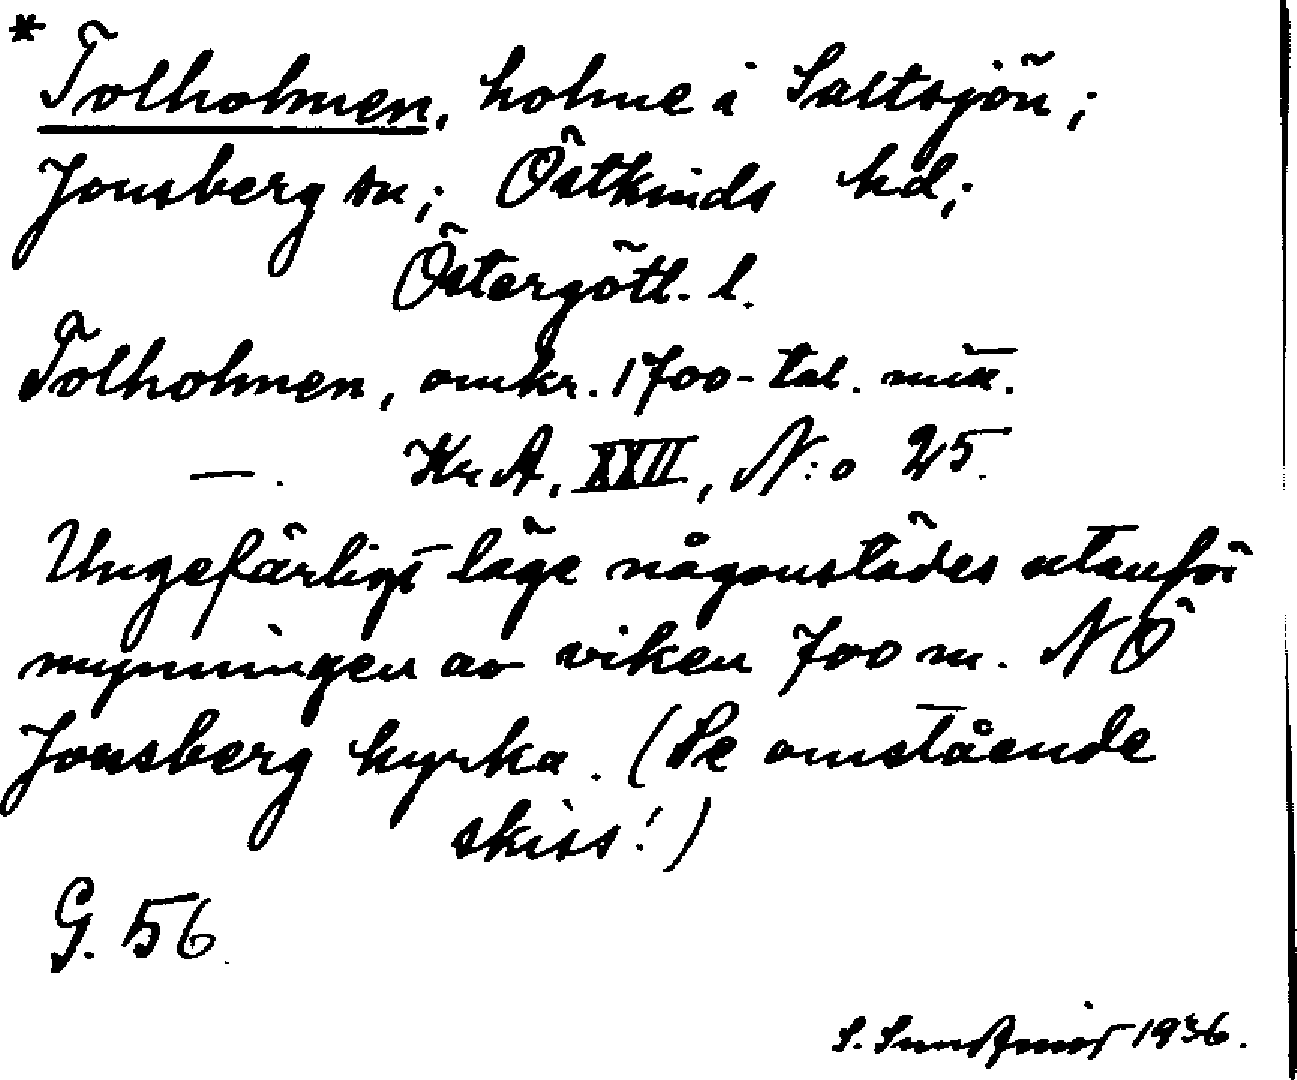 * Tolholmen, holme i Saltsjön;
Jonsberg sn; Östkinds hd;
Östergötl. l.
Tolholmen, omkr. 1700-tal. mitt.
—. Kr. A, XXII, N:o 25.
Ungefärligt läge någonstädes utanför
mynningen av viken 700 m. NÖ
Jonsberg kyrka. (Se omstående
skiss!)
G. 56.
S. 1936.